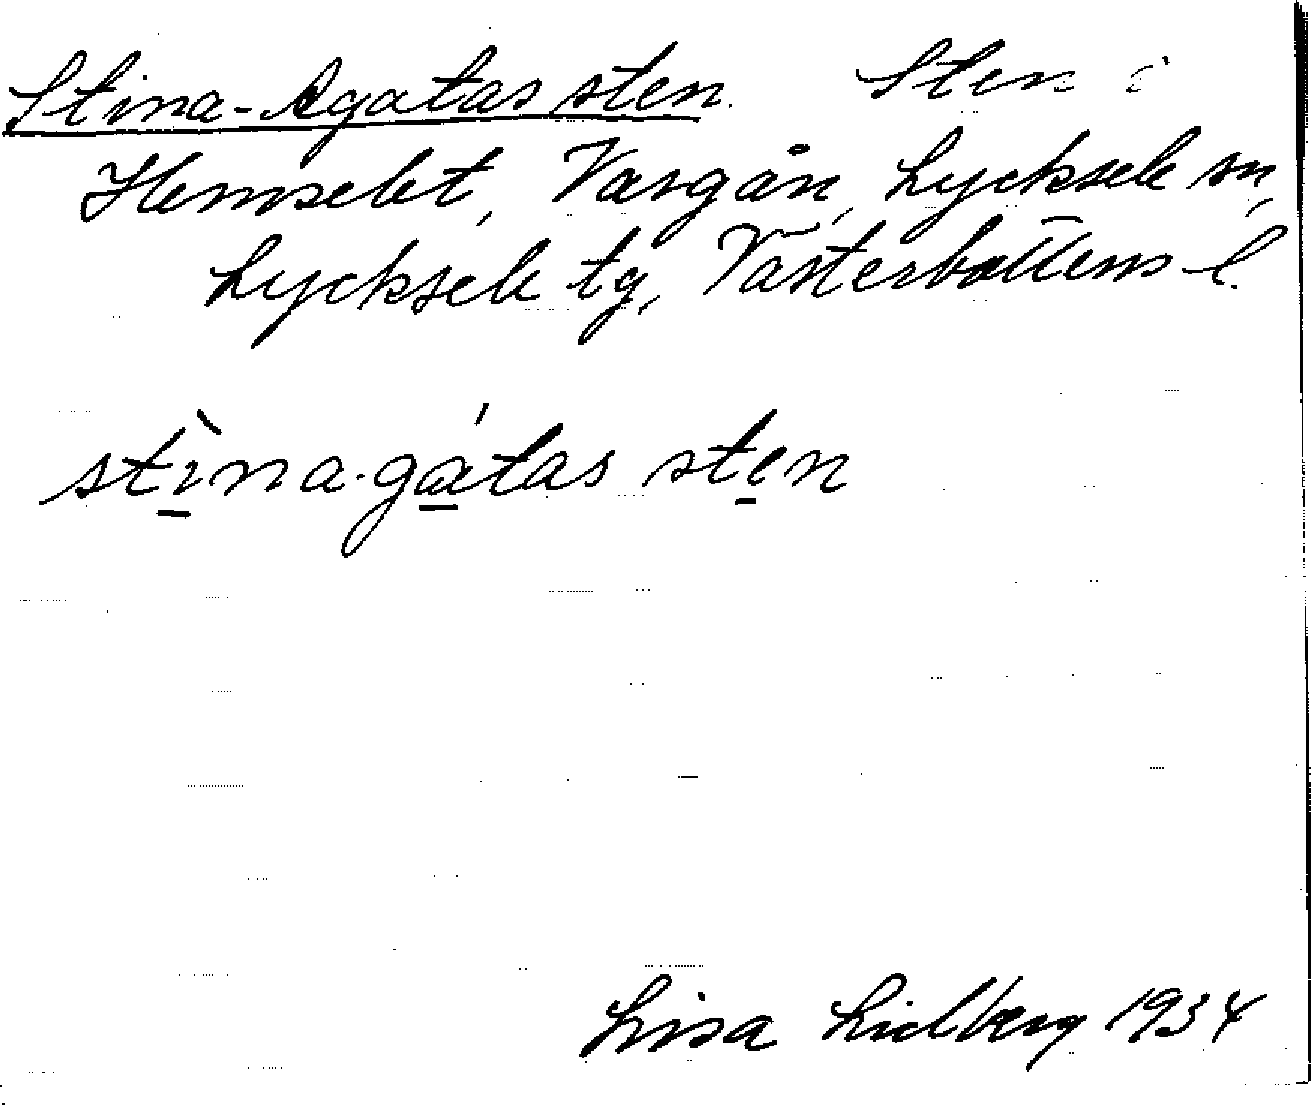 Stina-Agatas sten. Sten i
Hemselet, Vargån, Lycksele sn,
Lycksele tg, Västerbottens l.
stìna·gátas sten
Lisa Lidberg 1934